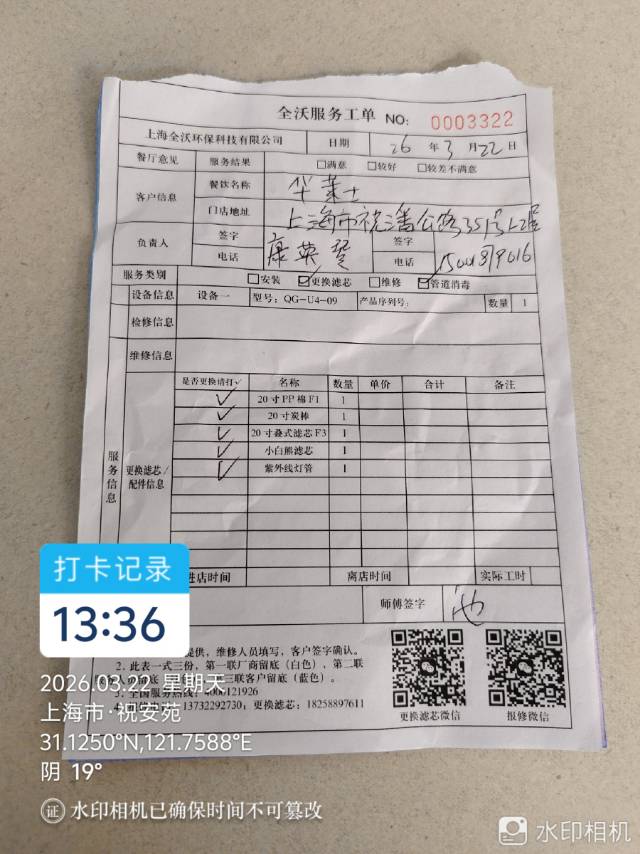 全沃服务工单 NO: 0003322
上海全沃环保科技有限公司 日期 26 年 3 月 22 日
餐厅意见 服务结果 □满意 □较好 □较差不满意
客户信息 餐饮名称 华莱士
门店地址 上海市祝潘公路351号
负责人 签字 康英 签字
电话 电话
服务类别 □安装 ☑更换滤芯 □维修 ☑管道消毒
设备信息 设备一 型号: QG-U4-09 产品序列号: 数量 1
检修信息
维修信息
服务信息
更换滤芯/配件信息
是否更换请打✓ 名称 数量 单价 合计 备注
✓ 20寸PP棉F1 1
✓ 20寸炭棒 1
✓ 20寸叠式滤芯F3 1
✓ 小白熊滤芯 1
✓ 紫外线灯管 1
进店时间 离店时间 实际工时
师傅签字
提供, 维修人员填写, 客户签字确认。
2. 此表一式三份, 第一联厂商留底(白色), 第二联
三联客户留底(蓝色)。
3. 全国服务热线: 4000121926
13732292730; 更换滤芯: 18258897611
更换滤芯微信 报修微信
打卡记录
13:36
2026.03.22 星期天
上海市·祝安苑
31.1250°N,121.7588°E
阴 19°
证 水印相机已确保时间不可篡改
水印相机